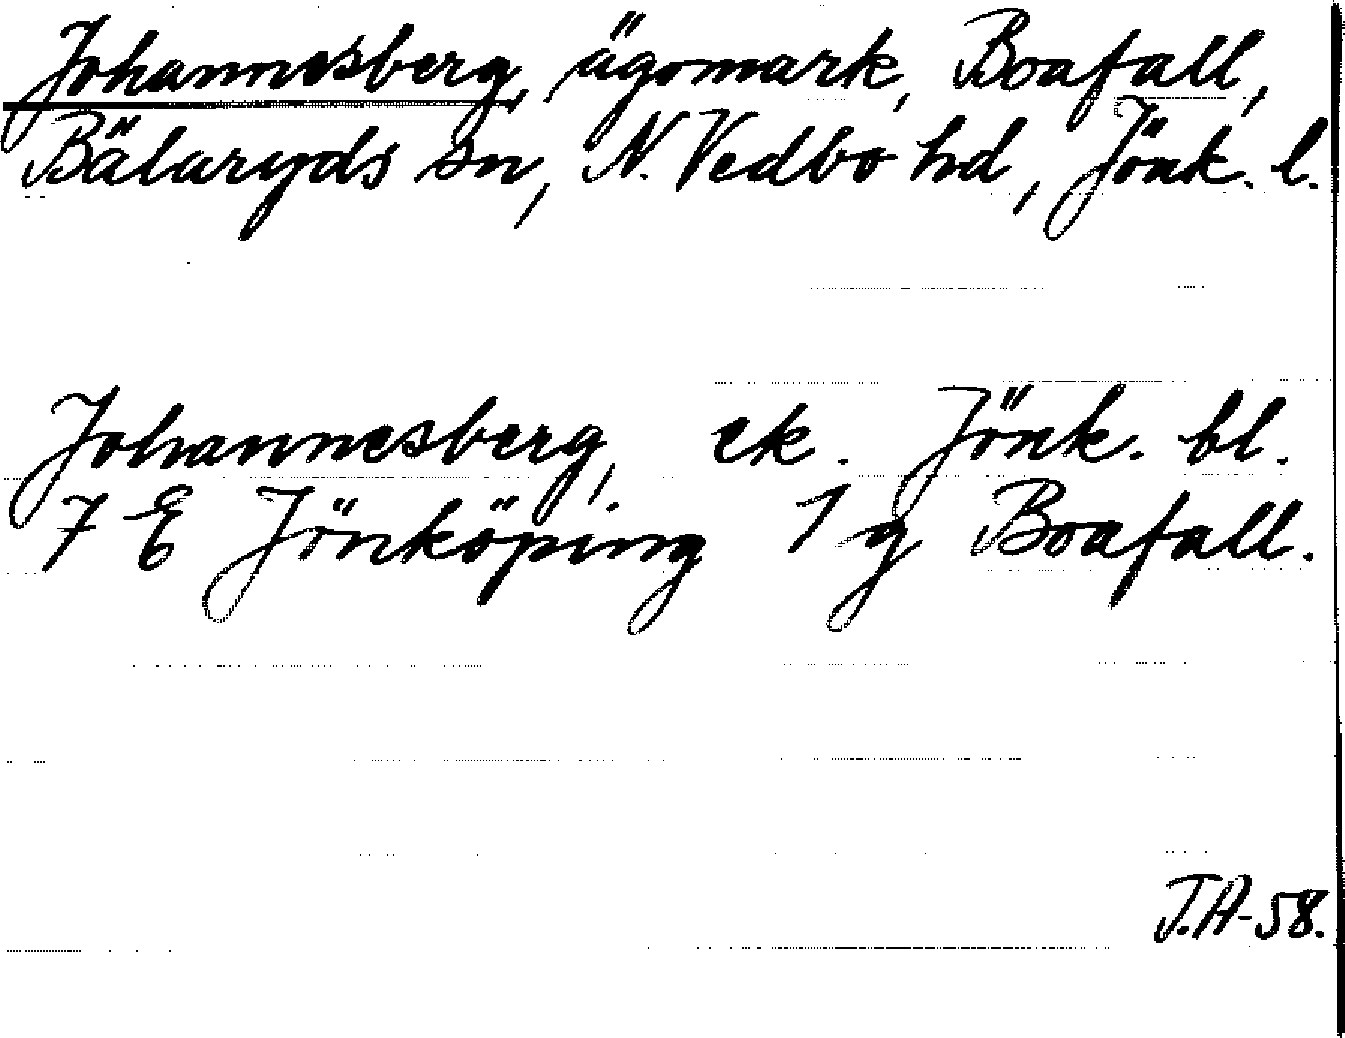 Johannesberg, ägomark, Boafall,
Bälaryds sn, N. Vedbo hd, Jönk. l.
Johannesberg, ek. Jönk. bl.
7 E Jönköping 1 g Boafall.
J.A-58.